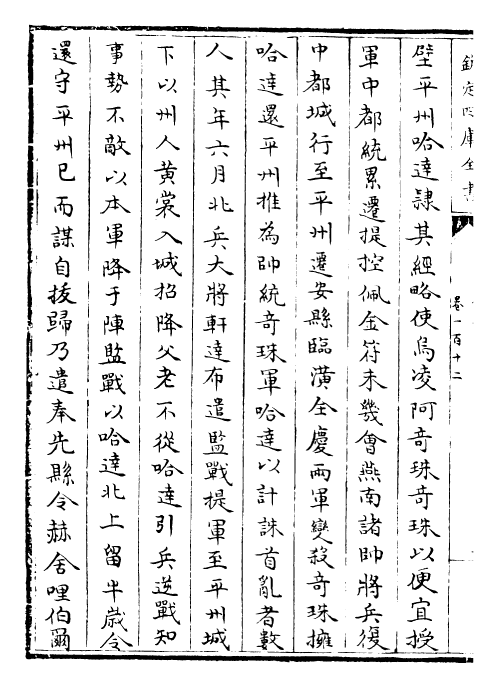 欽定四庫全書
卷一百十二
壁平州哈達隷其經略使烏凌阿竒珠竒珠以便宜授
軍中都統累遷提控佩金符未幾會燕南諸帥將兵復
中都城行至平州遷安縣臨潢全慶兩軍變殺竒珠擁
哈達還平州推為帥統竒珠軍哈達以計誅首亂者數
人其年六月北兵大將軒達布遣監戰提軍至平州城
下以州人黄裳入城招降父老不從哈達引兵逆戰知
事勢不敵以本軍降于陣監戰以哈達北上留半嵗令
還守平州已而謀自拔歸乃遣奉先縣令赫舍哩伯爾